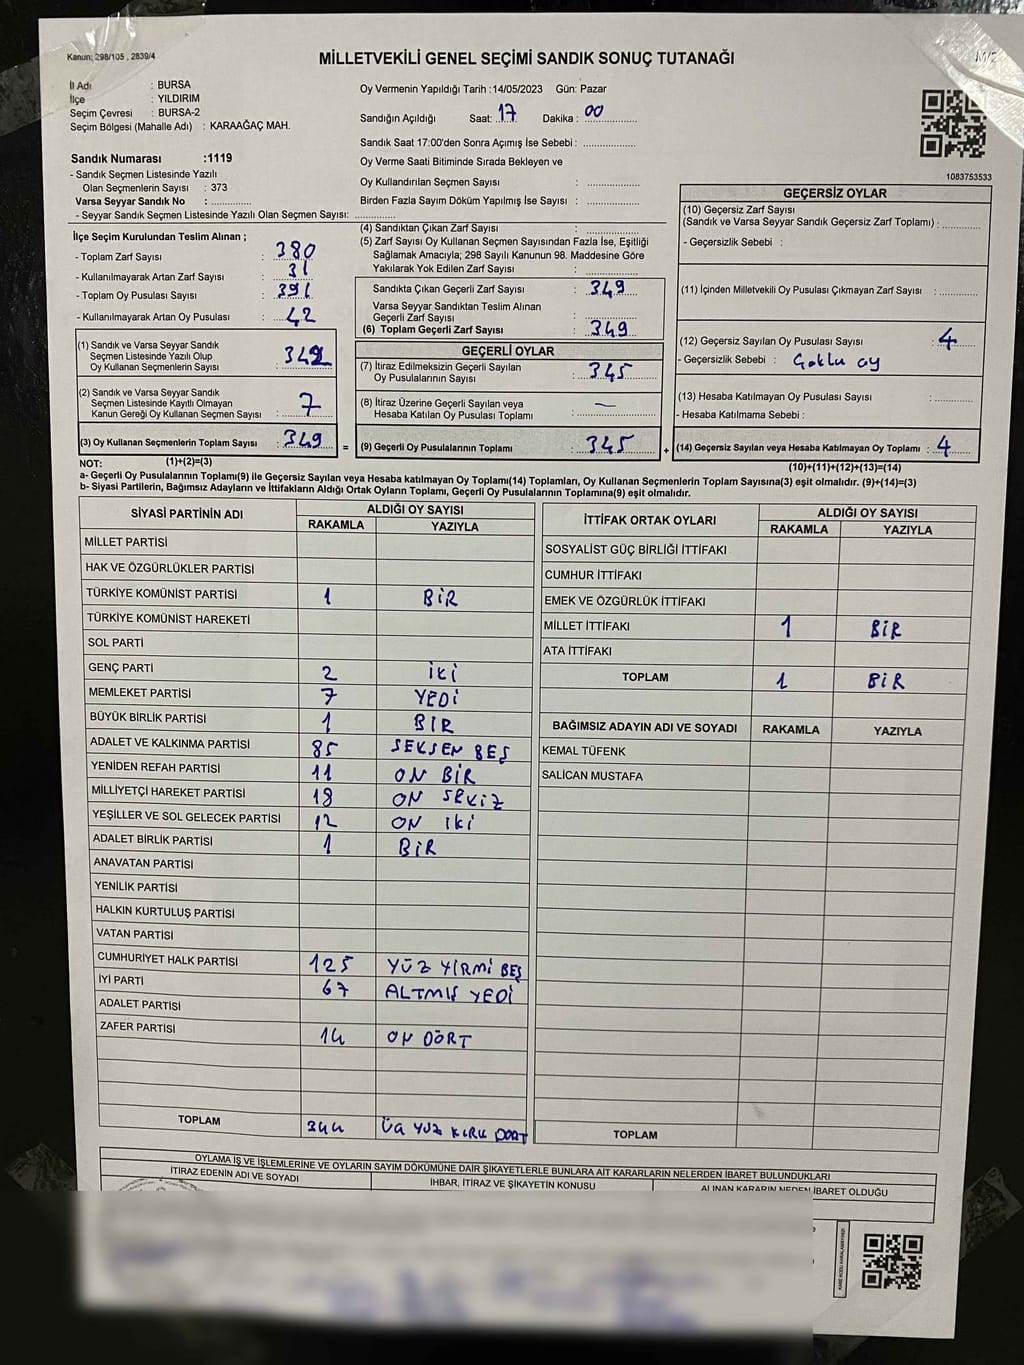 Kanun; 298/105 , 2839/4
MİLLETVEKİLİ GENEL SEÇİMİ SANDIK SONUÇ TUTANAĞI
İl Adı : BURSA
İlçe : YILDIRIM
Seçim Çevresi : BURSA-2
Seçim Bölgesi (Mahalle Adı) : KARAAĞAÇ MAH.
Sandık Numarası :1119
- Sandık Seçmen Listesinde Yazılı
Olan Seçmenlerin Sayısı : 373
Varsa Seyyar Sandık No : ..............
- Seyyar Sandık Seçmen Listesinde Yazılı Olan Seçmen Sayısı: ..............
Oy Vermenin Yapıldığı Tarih :14/05/2023 Gün: Pazar
Sandığın Açıldığı Saat: 17 Dakika : 00
Sandık Saat 17:00'den Sonra Açımış İse Sebebi : ..............
Oy Verme Saati Bitiminde Sırada Bekleyen ve
Oy Kullandırılan Seçmen Sayısı : ..............
Birden Fazla Sayım Döküm Yapılmış İse Sayısı : ..............
1083753533
İlçe Seçim Kurulundan Teslim Alınan ;
- Toplam Zarf Sayısı : 380
- Kullanılmayarak Artan Zarf Sayısı : 31
- Toplam Oy Pusulası Sayısı : 391
- Kullanılmayarak Artan Oy Pusulası : 42
(1) Sandık ve Varsa Seyyar Sandık
Seçmen Listesinde Yazılı Olup
Oy Kullanan Seçmenlerin Sayısı : 342
(2) Sandık ve Varsa Seyyar Sandık
Seçmen Listesinde Kayıtlı Olmayan
Kanun Gereği Oy Kullanan Seçmen Sayısı : 7
(3) Oy Kullanan Seçmenlerin Toplam Sayısı : 349
(1)+(2)=(3)
(4) Sandıktan Çıkan Zarf Sayısı : ..............
(5) Zarf Sayısı Oy Kullanan Seçmen Sayısından Fazla İse, Eşitliği
Sağlamak Amacıyla; 298 Sayılı Kanunun 98. Maddesine Göre
Yakılarak Yok Edilen Zarf Sayısı : ..............
Sandıkta Çıkan Geçerli Zarf Sayısı : 349
Varsa Seyyar Sandıktan Teslim Alınan
Geçerli Zarf Sayısı : ..............
(6) Toplam Geçerli Zarf Sayısı : 349
GEÇERLİ OYLAR
(7) İtiraz Edilmeksizin Geçerli Sayılan
Oy Pusulalarının Sayısı : 345
(8) İtiraz Üzerine Geçerli Sayılan veya
Hesaba Katılan Oy Pusulası Toplamı : —
= (9) Geçerli Oy Pusulalarının Toplamı : 345
GEÇERSİZ OYLAR
(10) Geçersiz Zarf Sayısı
(Sandık ve Varsa Seyyar Sandık Geçersiz Zarf Toplamı) : ..............
- Geçersizlik Sebebi :
(11) İçinden Milletvekili Oy Pusulası Çıkmayan Zarf Sayısı : ..............
(12) Geçersiz Sayılan Oy Pusulası Sayısı : 4
- Geçersizlik Sebebi : Çoklu oy
(13) Hesaba Katılmayan Oy Pusulası Sayısı : ..............
- Hesaba Katılmama Sebebi :
+ (14) Geçersiz Sayılan veya Hesaba Katılmayan Oy Toplamı : 4
(10)+(11)+(12)+(13)=(14)
NOT:
a- Geçerli Oy Pusulalarının Toplamı(9) ile Geçersiz Sayılan veya Hesaba katılmayan Oy Toplamı(14) Toplamları, Oy Kullanan Seçmenlerin Toplam Sayısına(3) eşit olmalıdır. (9)+(14)=(3)
b- Siyasi Partilerin, Bağımsız Adayların ve İttifakların Aldığı Ortak Oyların Toplamı, Geçerli Oy Pusulalarının Toplamına(9) eşit olmalıdır.
SİYASİ PARTİNİN ADI ALDIĞI OY SAYISI
RAKAMLA YAZIYLA
MİLLET PARTİSİ
HAK VE ÖZGÜRLÜKLER PARTİSİ
TÜRKİYE KOMÜNİST PARTİSİ 1 BİR
TÜRKİYE KOMÜNİST HAREKETİ
SOL PARTİ
GENÇ PARTİ 2 İKİ
MEMLEKET PARTİSİ 7 YEDİ
BÜYÜK BİRLİK PARTİSİ 1 BİR
ADALET VE KALKINMA PARTİSİ 85 SEKSEN BEŞ
YENİDEN REFAH PARTİSİ 11 ON BİR
MİLLİYETÇİ HAREKET PARTİSİ 18 ON SEKİZ
YEŞİLLER VE SOL GELECEK PARTİSİ 12 ON İKİ
ADALET BİRLİK PARTİSİ 1 BİR
ANAVATAN PARTİSİ
YENİLİK PARTİSİ
HALKIN KURTULUŞ PARTİSİ
VATAN PARTİSİ
CUMHURİYET HALK PARTİSİ 125 YÜZ YİRMİ BEŞ
İYİ PARTİ 67 ALTMIŞ YEDİ
ADALET PARTİSİ
ZAFER PARTİSİ 14 ON DÖRT
TOPLAM 344 ÜÇ YÜZ KIRK DÖRT
İTTİFAK ORTAK OYLARI ALDIĞI OY SAYISI
RAKAMLA YAZIYLA
SOSYALİST GÜÇ BİRLİĞİ İTTİFAKI
CUMHUR İTTİFAKI
EMEK VE ÖZGÜRLÜK İTTİFAKI
MİLLET İTTİFAKI 1 BİR
ATA İTTİFAKI
TOPLAM 1 BİR
BAĞIMSIZ ADAYIN ADI VE SOYADI RAKAMLA YAZIYLA
KEMAL TÜFENK
SALİCAN MUSTAFA
TOPLAM
OYLAMA İŞ VE İŞLEMLERİNE VE OYLARIN SAYIM DÖKÜMÜNE DAİR ŞİKAYETLERLE BUNLARA AİT KARARLARIN NELERDEN İBARET BULUNDUKLARI
İTİRAZ EDENİN ADI VE SOYADI İHBAR, İTİRAZ VE ŞİKAYETİN KONUSU ALINAN KARARIN NEDEN İBARET OLDUĞU